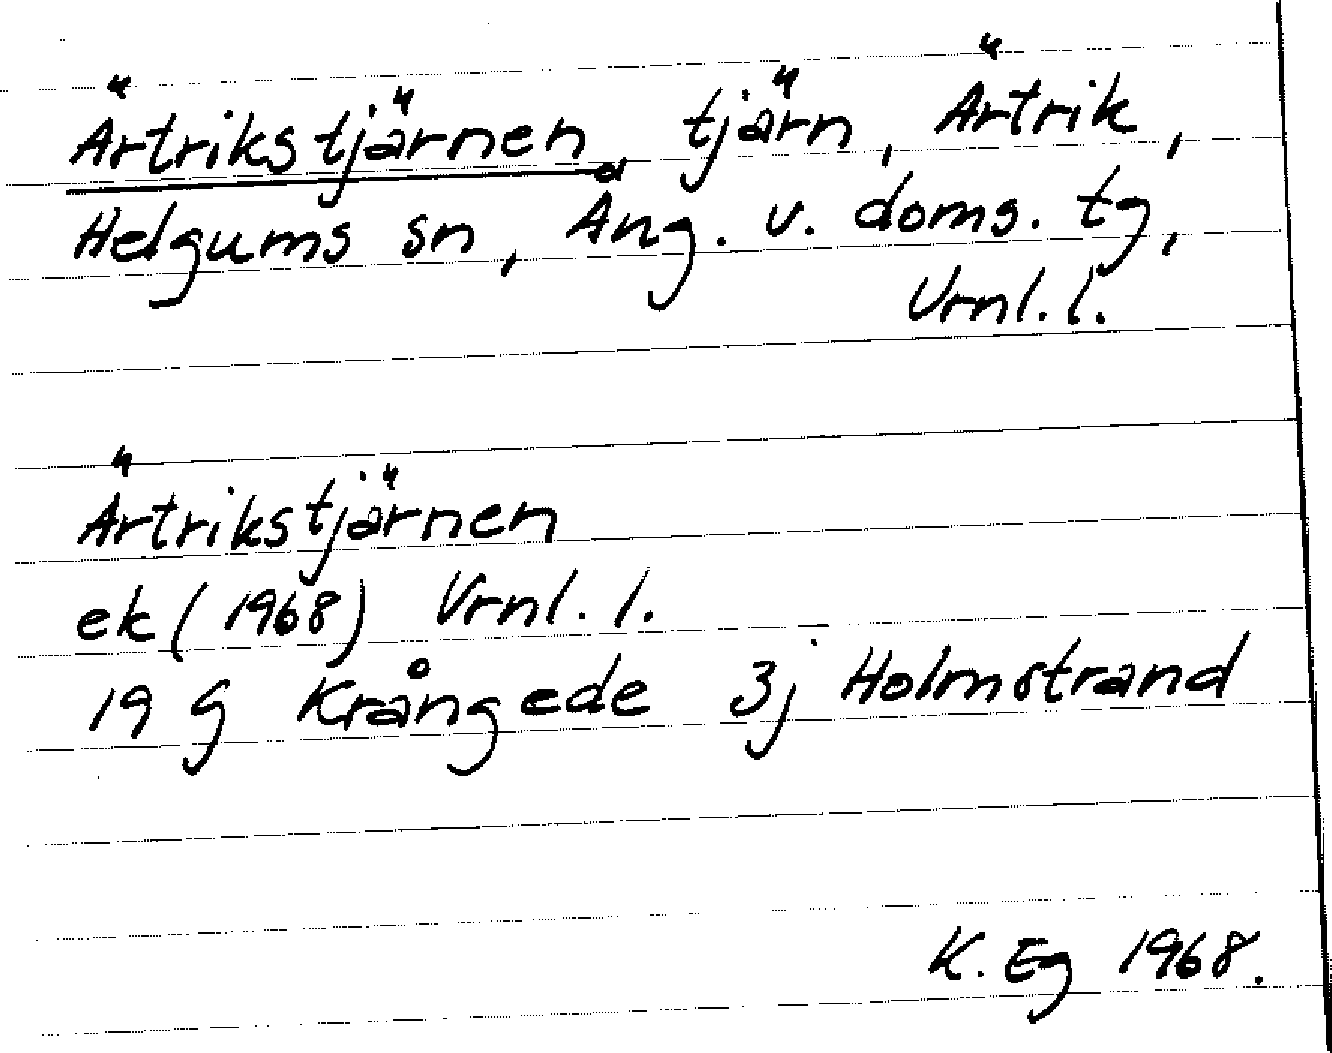 Ärtrikstjärnen, tjärn, Ärtrik,
Helgums sn, Ång. v. doms. tg,
Vrnl. l.
Ärtrikstjärnen
ek (1968) Vrnl. l.
19 G Krångede 3j Holmstrand
K. Eg 1968.